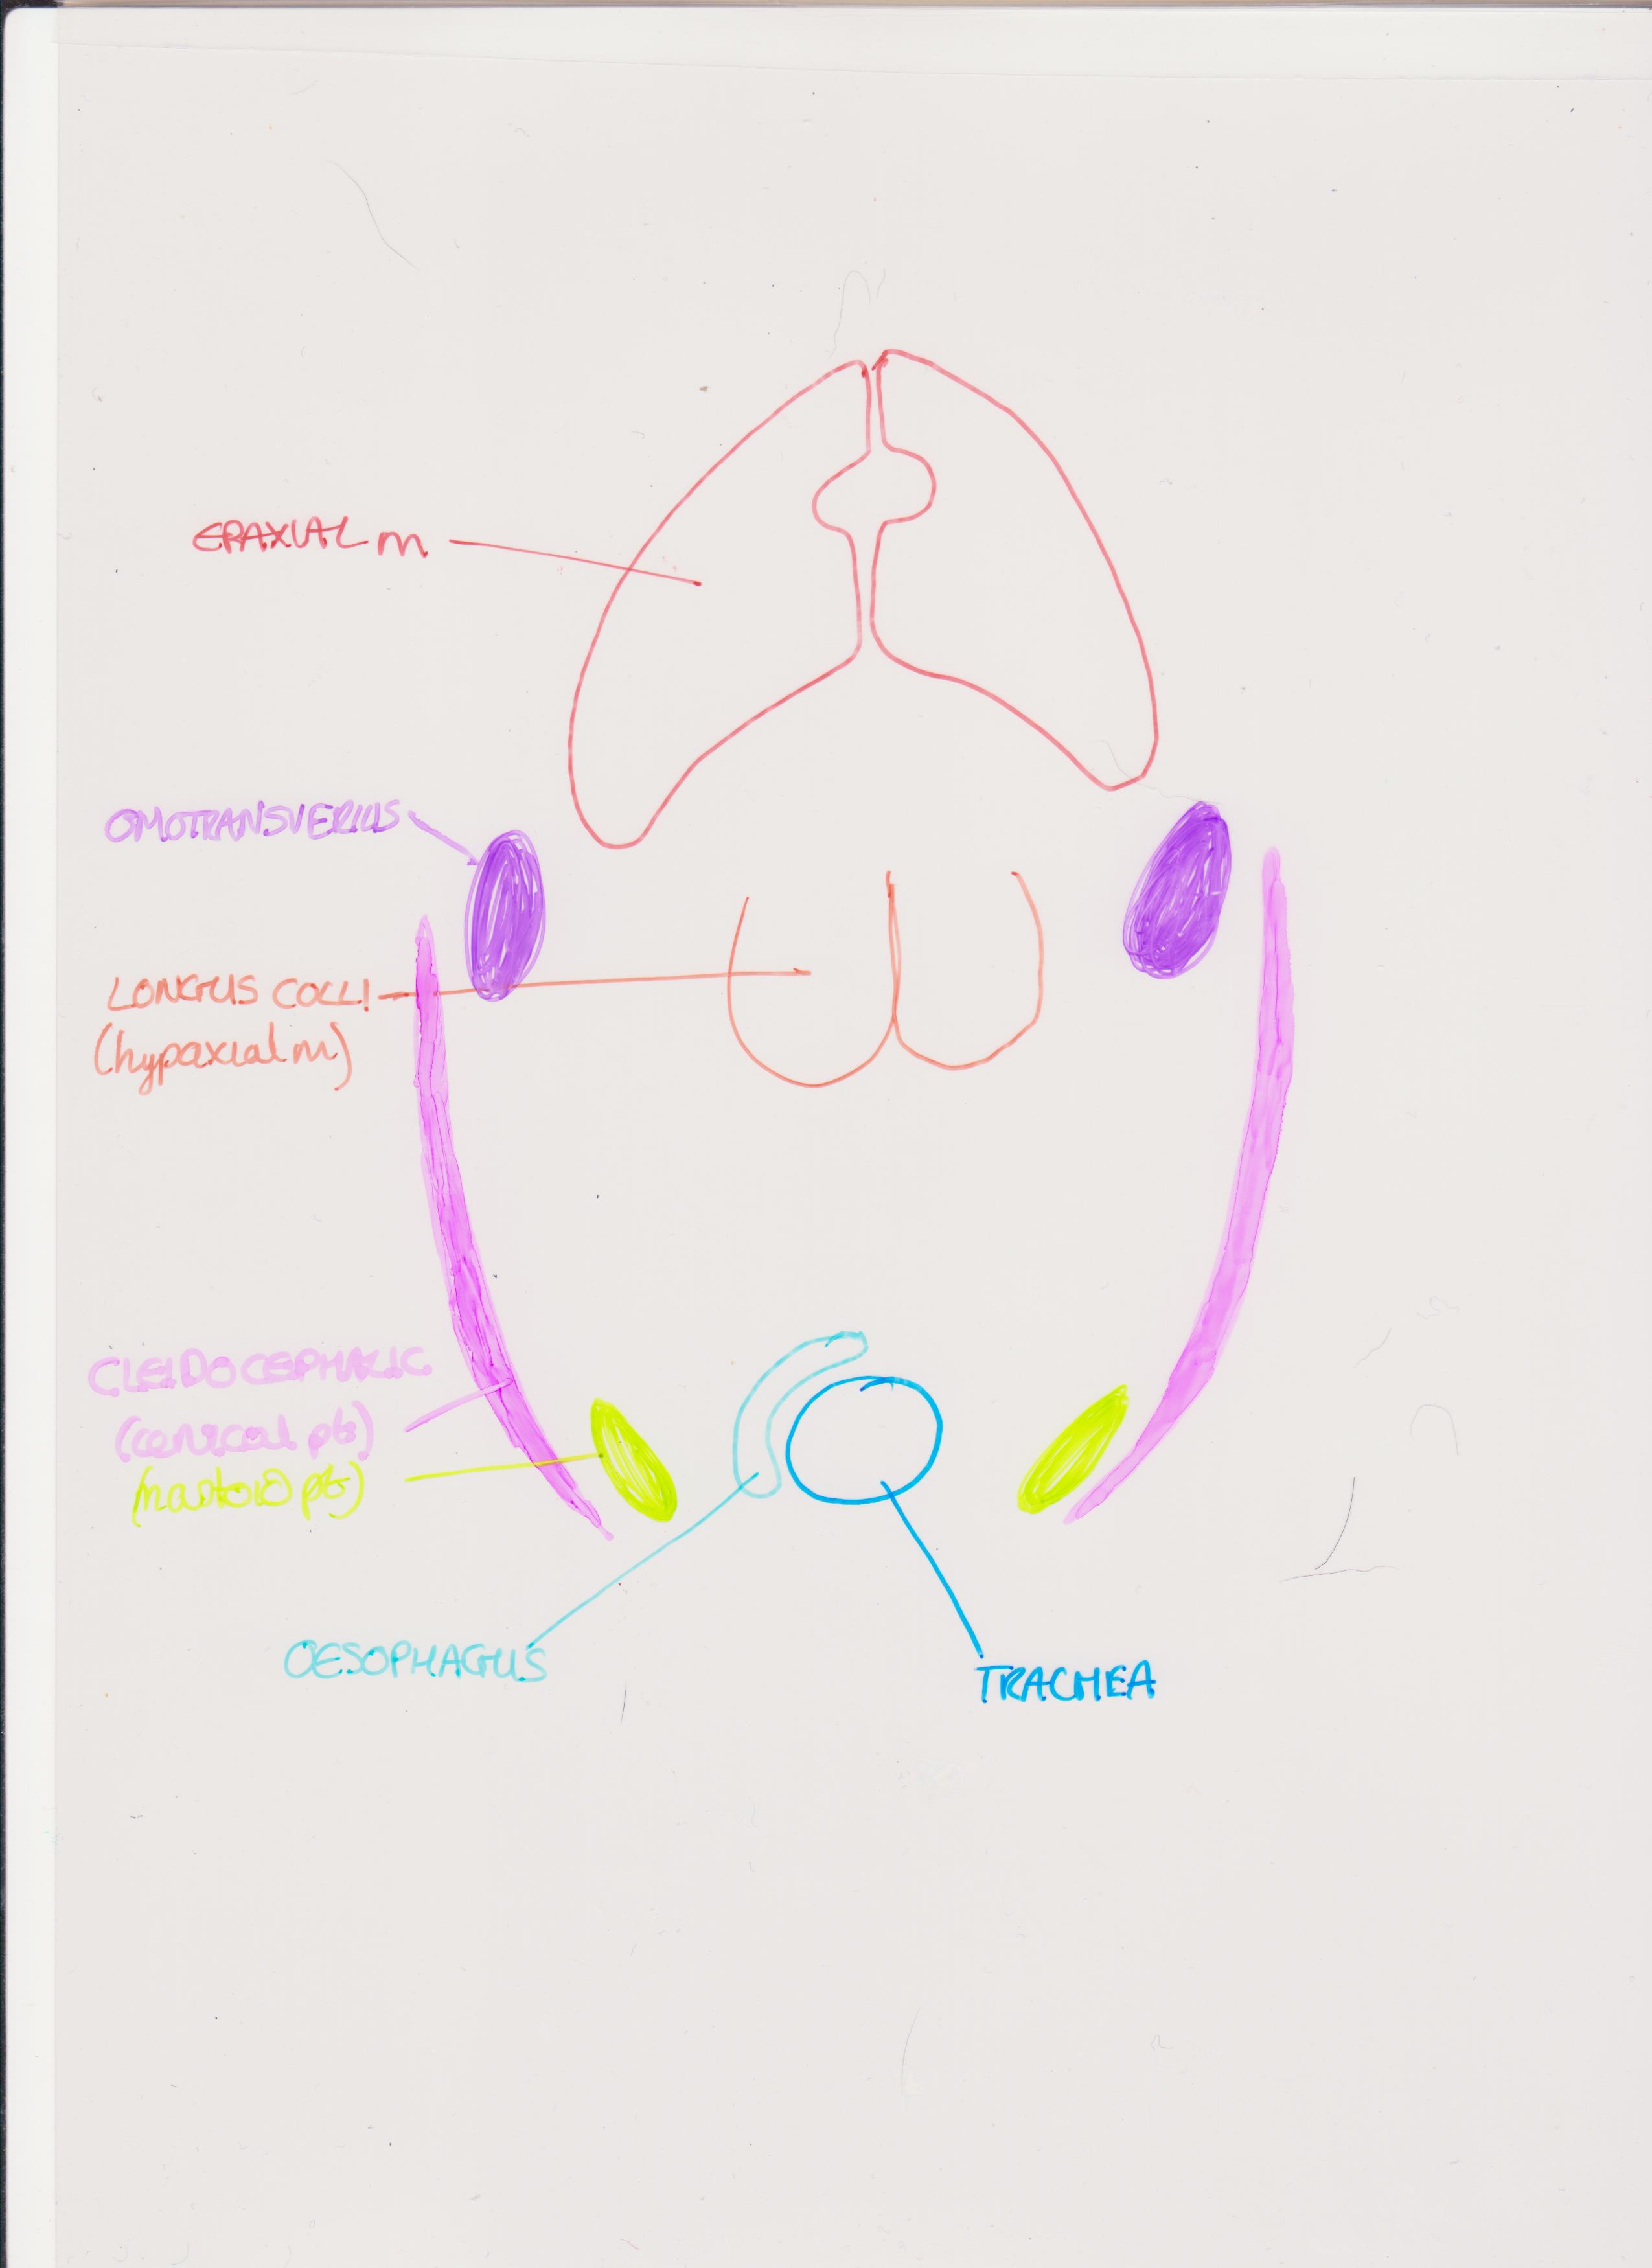 EPAXIAL m
OMOTRANSVERIUS
LONGUS COLLI
(hypaxial m)
CLEIDOCEPHALIC
(cervical pt)
(mastoid pt)
OESOPHAGUS
TRACHEA